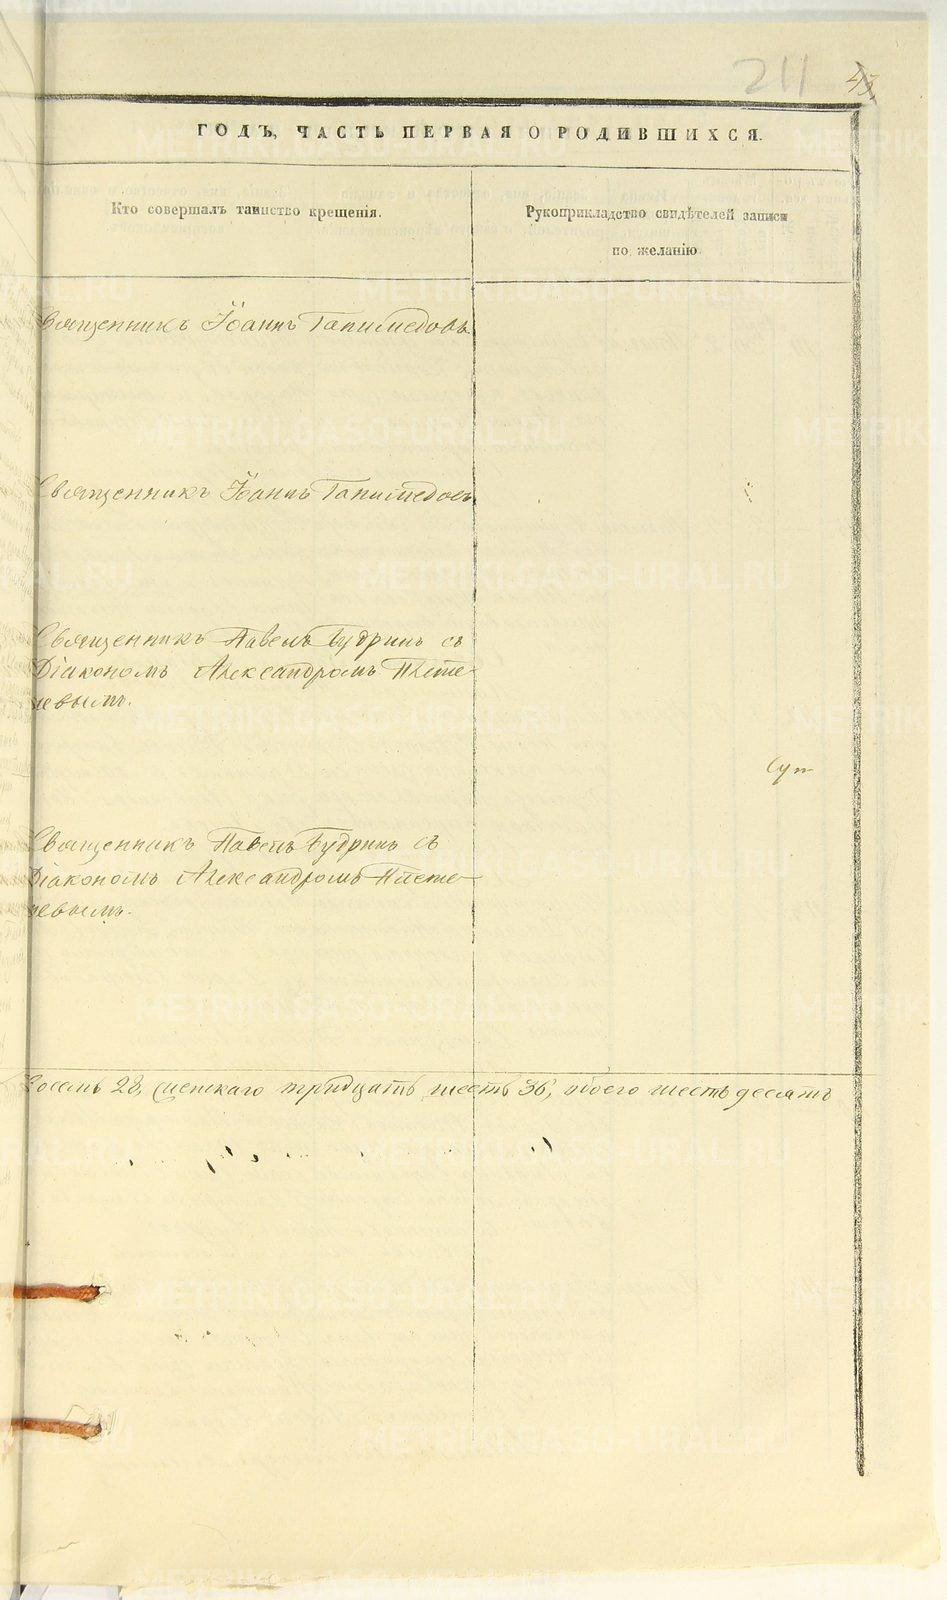 211 43.
ГОДЪ, ЧАСТЬ ПЕРВАЯ О РОДИВШИХСЯ.
Кто совершалъ таинство крещенія.
Рукоприкладство свидѣтелей записи
по желанію.
Священникъ Іоаннъ Ганимедовъ
Священникъ Іоаннъ Ганимедовъ
Священникъ Павелъ Будринъ съ
Діакономъ Александромъ Плете-
невымъ.
Священникъ Павелъ Будринъ съ
Діакономъ Александромъ Плете-
невымъ.
восемь 28, женскаго тридцать шесть 36, обоего шестьдесятъ
METRIKI.GASO-URAL.RU